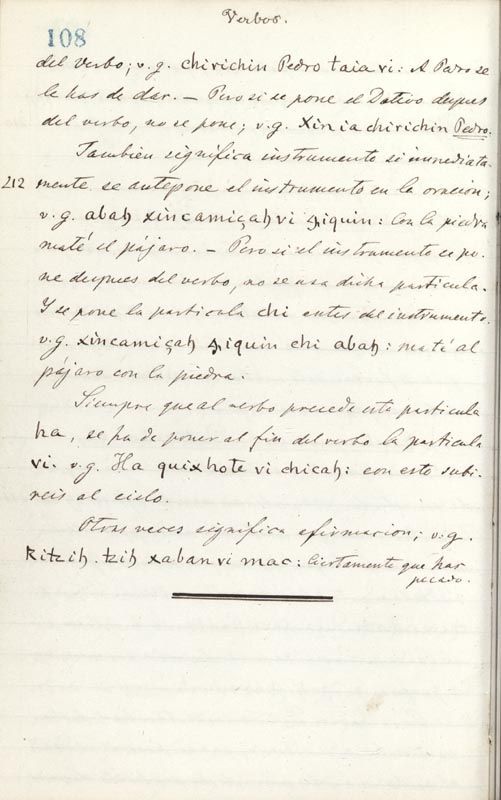 Verbos.
108
del verbo; v.g. chirichin Pedro taia vi: A Pedro se
le has de dar. — Pero si se pone el Dativo despues
del verbo, no se pone; v.g. Xinia chirichin Pedro.
Tambien significa instrumento si inmediata-
212 mente se antepone el instrumento en la oracion;
v.g. abah xincamiçah vi iquin: Con la piedra
maté el pájaro. — Pero si el instrumento se po-
ne despues del verbo, no se usa dicha particula.
Y se pone la particula chi antes del instrumento.
v.g. xincamiçah iquin chi abah: maté al
pájaro con la piedra.
Siempre que al verbo precede esta particula
ha, se ha de poner al fin del verbo la particula
vi. v.g. Ha quixhote vi chicah: con esto subi-
reis al cielo.
Otras veces significa afirmacion; v.g.
Kitzih.tzih xaban vi mac: Ciertamente que has
pecado.